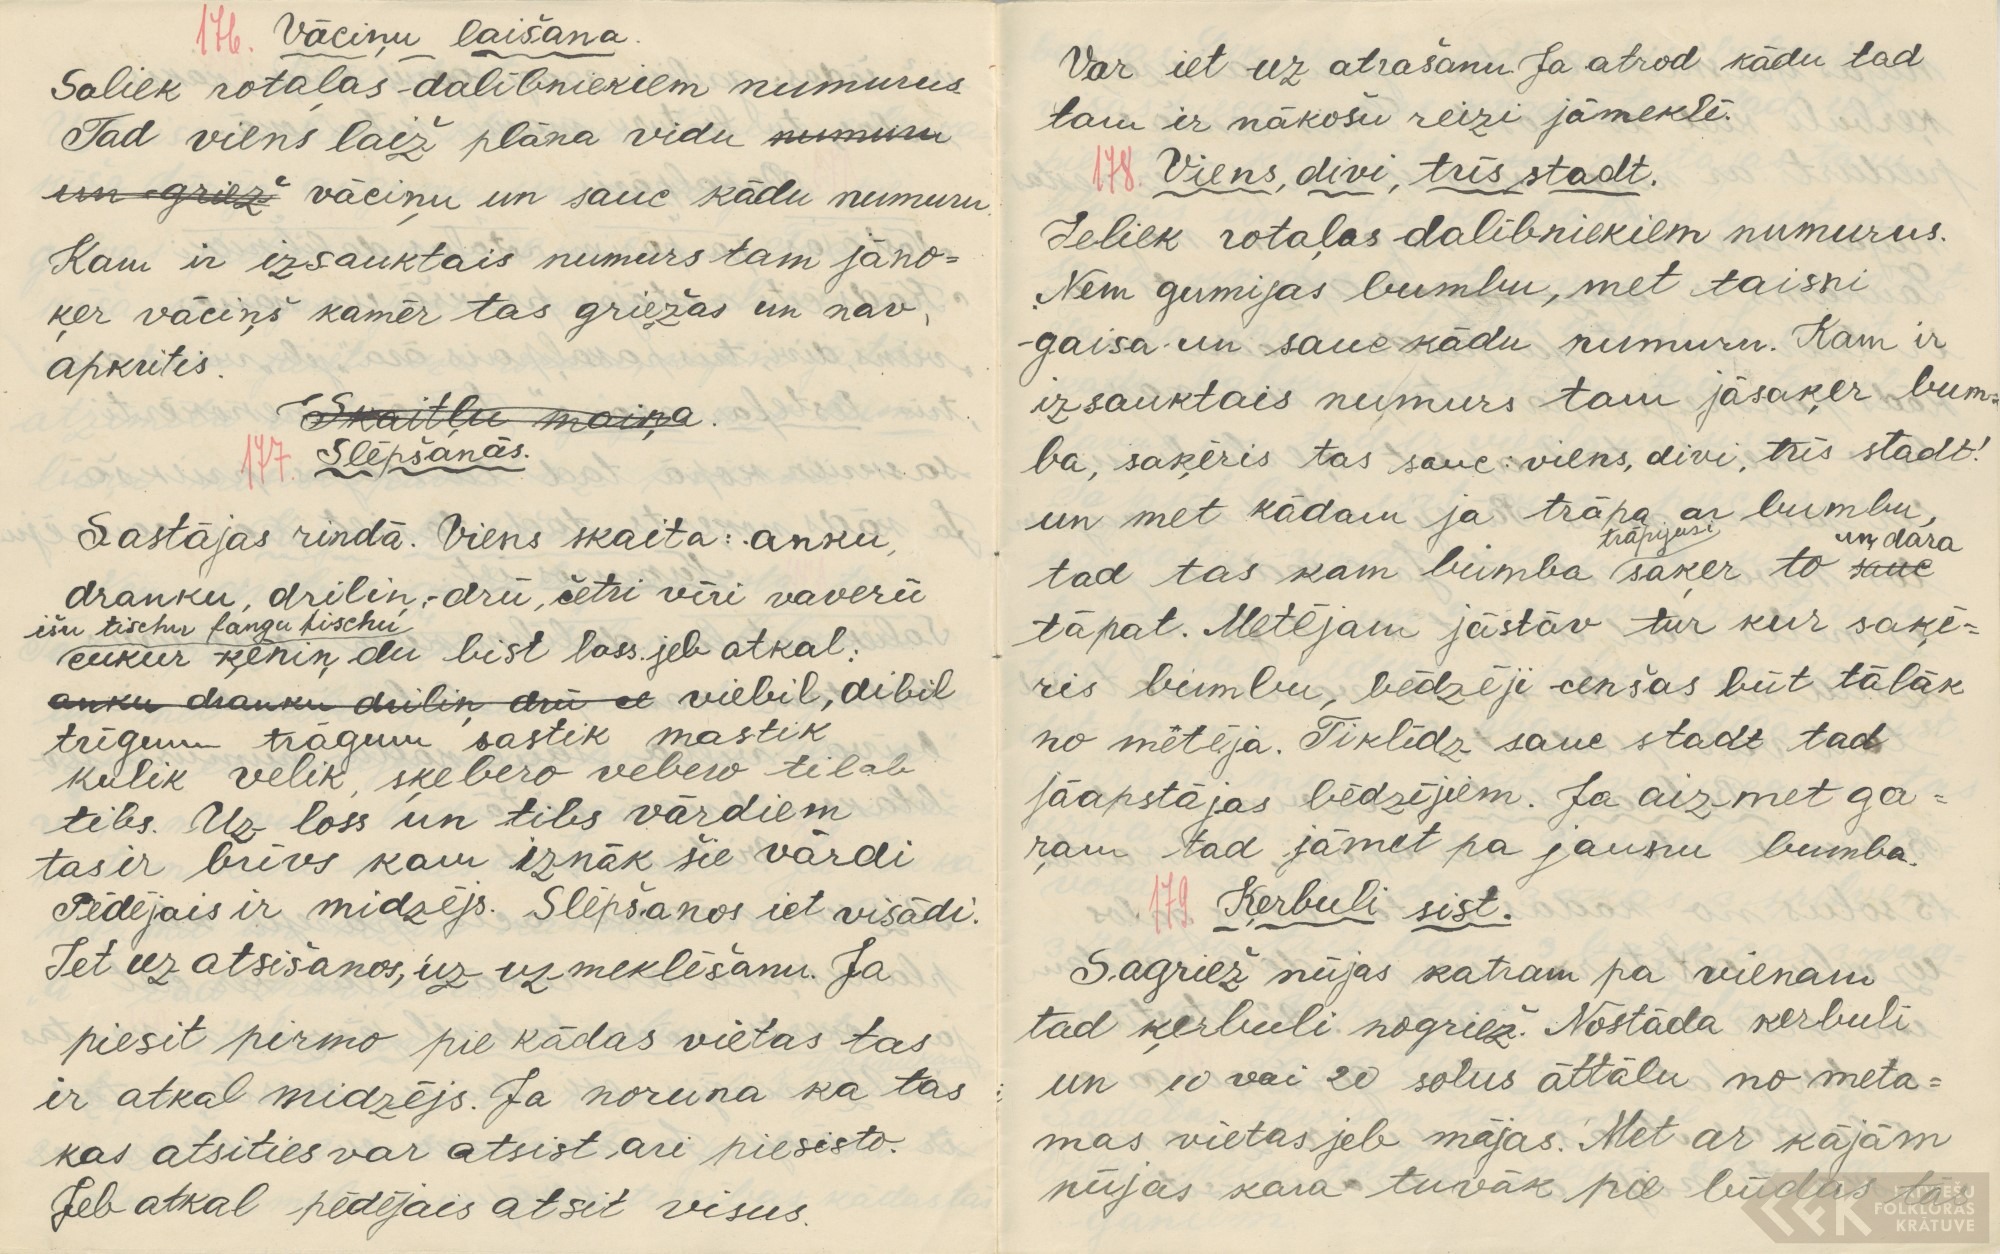 176. Vāciņu laišana.
Saliek rotaļas dalībniekiem numurus.
Tad viens laiž plāna vidu numuru
un griež vāciņu un sauc kādu numuru.
Kam ir izsauktais numurs tam jāno=
ķer vāciņš kamēr tas griežas un nav
apkritis.
Skaitļu maiņa.
177. Slēpšanās.
Sastājas rindā. Viens skaita: anku,
dranku, driliņ, drū, četri vīri vaverū
išu tischu fangu fischu
cukur ķēniņ du bist loss. jeb atkal:
anku dranku driliņ drū viebil, dibil
trīgum trāgum sastik mastik
kulik velik, sķebero vebero tilab
tibs. Uz loss un tibs vārdiem
tas ir brīvs kam iznāk šie vārdi
Pēdējais ir midzējs. Slēpšanos iet visādi.
Iet uz atsišanos, uz uzmeklēšanu. Ja
piesit pirmo pie kādas vietas tas
ir atkal midzējs. Ja noruna ka tas
kas atsities var atsist ari piesisto.
Jeb atkal pēdējais atsit visus.
Var iet uz atrašanu. Ja atrod kādu tad
tam ir nākošu reizi jāmeklē.
178. Viens, divi, trīs stadt.
Ieliek rotaļas dalībniekiem numurus.
Ņem gumijas bumbu, met taisni
gaisa un sauc kādu numuru. Kam ir
izsauktais numurs tam jāsaķer bum=
ba, saķēris tas sauc: viens, divi, trīs stadt!
un met kādam ja trāpa ar bumbu,
trāpijusi un dara
tad tas kam bumba saķer to sauc
tāpat. Metējam jāstāv tur kur saķē=
ris bumbu, bēdzēji cenšas būt tālāk
no mētēja. Tiklīdz sauc stadt tad
jāapstājas bēdzējiem. Ja aizmet ga=
ŗam tad jāmet pa jaunu bumba.
179. Ķerbuli sist.
Sagriež nūjas katram pa vienam
tad ķerbuli nogriež. Nostāda kerbuli
un 10 vai 20 soļus attālu no meta=
mas vietas jeb mājas. Met ar kājām
nūjas kara tuvāk pie būdas tas
LATVIEŠU
FOLKLORAS
KRĀTUVE